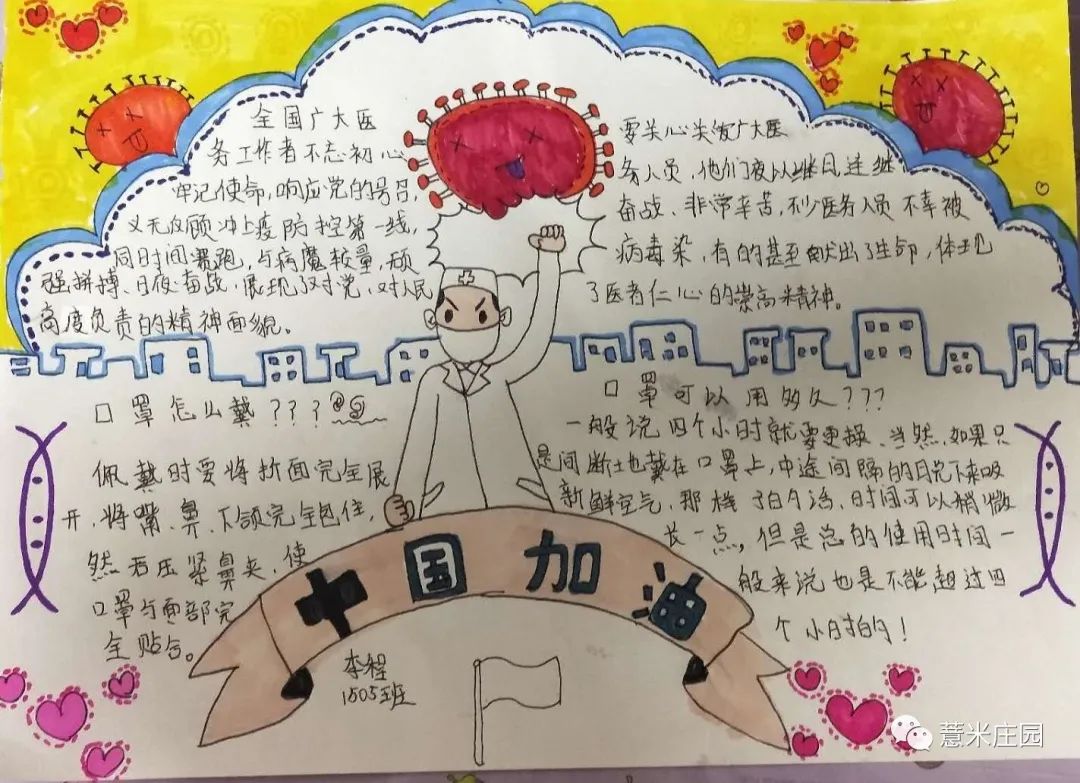 全国广大医
务工作者不忘初心
牢记使命,响应党的号召,
义无反顾冲上疫防控第一线,
同时间赛跑,与病魔较量,顽
强拼搏、日夜奋战,展现了对党,对人民
高度负责的精神面貌。
要关心关爱广大医
务人员,他们夜以继日连继
奋战、非常辛苦,不少医务人员不幸被
病毒染,有的甚至献出了生命,体现
了医者仁心的崇高精神。
口罩怎么戴???
佩戴时要将折面完全展
开,将嘴、鼻、下颌完全包住,
然后压紧鼻夹,使
口罩与面部完
全贴合。
口罩可以用多久???
一般说四个小时就要更换、当然,如果只
是间断地戴在口罩上,中途间隔的
新鲜空气,那样的话,时间可以稍微
长一点,但是总的使用时间一
般来说也是不能超过四
个小时的!
中国加油
李程
1505班
薏米庄园